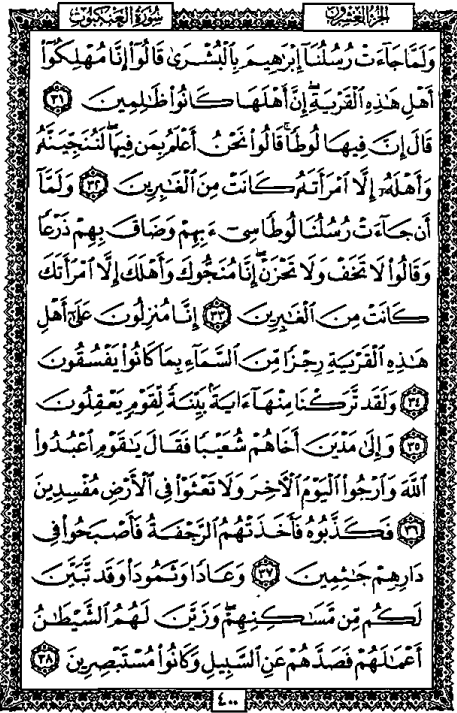 سورة العنكبوت
الجزء العشرون
وَلَمَّا جَآءَتْ رُسُلُنَآ إِبْرَٰهِيمَ بِٱلْبُشْرَىٰ قَالُوٓا۟ إِنَّا مُهْلِكُوٓا۟
أَهْلِ هَٰذِهِ ٱلْقَرْيَةِ ۖ إِنَّ أَهْلَهَا كَانُوا۟ ظَٰلِمِينَ ٣١
قَالَ إِنَّ فِيهَا لُوطًا ۚ قَالُوا۟ نَحْنُ أَعْلَمُ بِمَن فِيهَا ۖ لَنُنَجِّيَنَّهُۥ
وَأَهْلَهُۥٓ إِلَّا ٱمْرَأَتَهُۥ كَانَتْ مِنَ ٱلْغَٰبِرِينَ ٣٢ وَلَمَّآ
أَن جَآءَتْ رُسُلُنَا لُوطًا سِىٓءَ بِهِمْ وَضَاقَ بِهِمْ ذَرْعًا
وَقَالُوا۟ لَا تَخَفْ وَلَا تَحْزَنْ ۖ إِنَّا مُنَجُّوكَ وَأَهْلَكَ إِلَّا ٱمْرَأَتَكَ
كَانَتْ مِنَ ٱلْغَٰبِرِينَ ٣٣ إِنَّا مُنزِلُونَ عَلَىٰٓ أَهْلِ
هَٰذِهِ ٱلْقَرْيَةِ رِجْزًا مِّنَ ٱلسَّمَآءِ بِمَا كَانُوا۟ يَفْسُقُونَ
٣٤ وَلَقَد تَّرَكْنَا مِنْهَآ ءَايَةًۢ بَيِّنَةً لِّقَوْمٍ يَعْقِلُونَ
٣٥ وَإِلَىٰ مَدْيَنَ أَخَاهُمْ شُعَيْبًا فَقَالَ يَٰقَوْمِ ٱعْبُدُوا۟
ٱللَّهَ وَٱرْجُوا۟ ٱلْيَوْمَ ٱلْءَاخِرَ وَلَا تَعْثَوْا۟ فِى ٱلْأَرْضِ مُفْسِدِينَ
٣٦ فَكَذَّبُوهُ فَأَخَذَتْهُمُ ٱلرَّجْفَةُ فَأَصْبَحُوا۟ فِى
دَارِهِمْ جَٰثِمِينَ ٣٧ وَعَادًا وَثَمُودَا۟ وَقَد تَّبَيَّنَ
لَكُم مِّن مَّسَٰكِنِهِمْ ۖ وَزَيَّنَ لَهُمُ ٱلشَّيْطَٰنُ
أَعْمَٰلَهُمْ فَصَدَّهُمْ عَنِ ٱلسَّبِيلِ وَكَانُوا۟ مُسْتَبْصِرِينَ ٣٨
٤٠٠